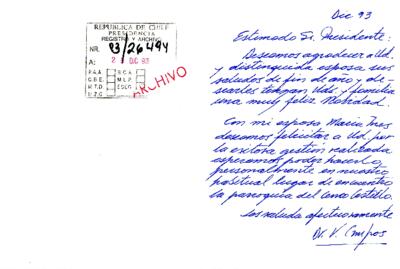 REPUBLICA DE CHILE
PRESIDENCIA
REGISTRO Y ARCHIVO
NR. 93/26494
A: 2 DIC 93
P.A.A. R.C.A.
C.B.E. M.L.P.
M.T.O. EDEC
M.Z.C.
ARCHIVO
Dic 93
Estimado Sr. Presidente:
Deseamos agradecer a Ud.
y distinguida esposa sus
saludos de fin de año y de-
searles tengan Uds. y familia
una muy feliz Navidad.
Con mi esposa María Ines
deseamos felicitar a Ud. por
la exitosa gestión realizada
esperamos poder hacerlo
personalmente en nuestro
habitual lugar de encuentro
la parroquia del Cerro Castillo.
Los saluda afectuosamente
Dr. V. Campos